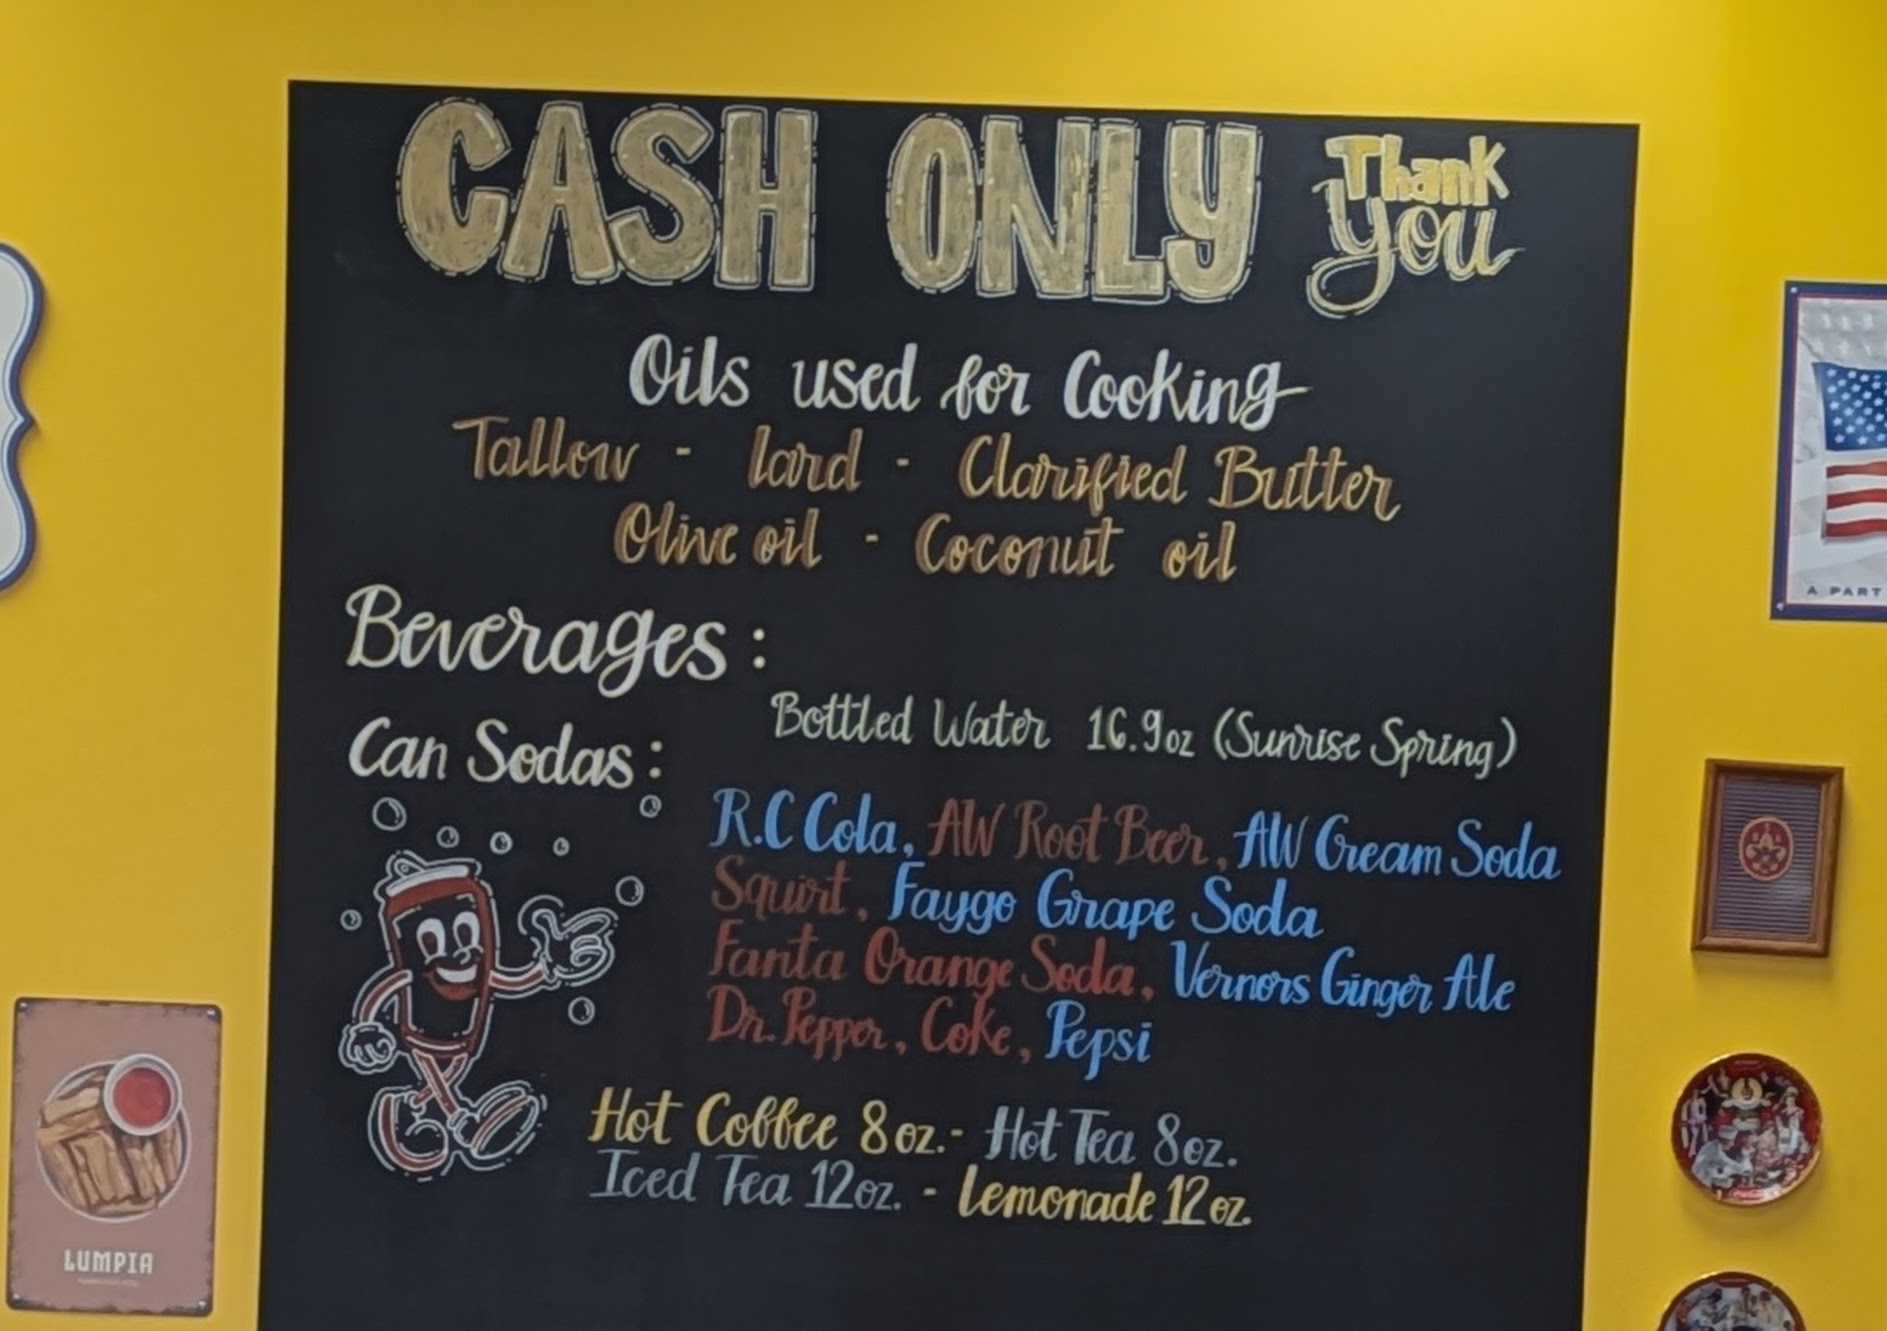 CASH ONLY Thank You
Oils used for Cooking
Tallow - lard - Clarified Butter
Olive oil - Coconut oil
Beverages :
Bottled Water 16.9oz (Sunrise Spring)
Can Sodas :
R.C Cola, AW Root Beer, AW Cream Soda
Squirt, Faygo Grape Soda
Fanta Orange Soda, Vernors Ginger Ale
Dr. Pepper, Coke, Pepsi
Hot Coffee 8oz. - Hot Tea 8oz.
Iced Tea 12oz. - Lemonade 12oz.
A PART
LUMPIA